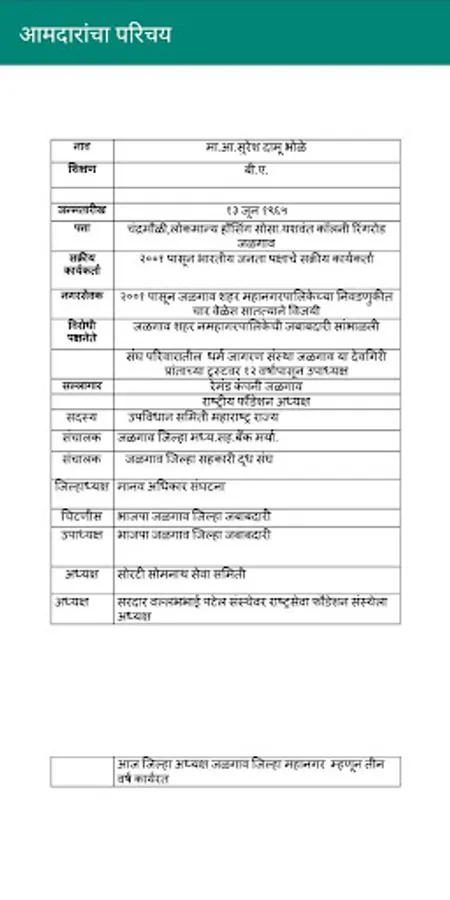 आमदारांचा परिचय
नाव मा.आ.सुरेश दामू भोळे
शिक्षण बी.ए.
जन्मतारीख १३ जून १९६५
पत्ता चंद्रमौळी,लोकमान्य हौसिंग सोसा.यशवंत कॉलनी रिंगरोड
जळगाव
सक्रीय २००१ पासून भारतीय जनता पक्षाचे सक्रीय कार्यकर्ता
कार्यकर्ता
नगरसेवक २००१ पासून जळगाव शहर महानगरपालिकेच्या निवडणुकीत
चार वेळेस सातत्याने विजयी
विरोधी जळगाव शहर नमहागरपालिकेची जबाबदारी सांभाळली
पक्षनेते
संघ परिवारातील धर्म जागरण संस्था जळगाव या देवगिरी
प्रांताच्या ट्रस्टवर १२ वर्षांपासून उपाध्यक्ष
सल्लागार रेमंड कंपनी जळगाव
राष्ट्रीय फौंडेशन अध्यक्ष
सदस्य उपविधान समिती महाराष्ट्र राज्य
संचालक जळगाव जिल्हा मध्य.सह.बँक मर्या.
संचालक जळगाव जिल्हा सहकारी दूध संघ
जिल्हाध्यक्ष मानव अधिकार संघटना
चिटणीस भाजपा जळगाव जिल्हा जबाबदारी
उपाध्यक्ष भाजपा जळगाव जिल्हा जबाबदारी
अध्यक्ष सोरटी सोमनाथ सेवा समिती
अध्यक्ष सरदार वल्लभभाई पटेल संस्थेवर राष्ट्रसेवा फौंडेशन संस्थेला
अध्यक्ष
आज जिल्हा अध्यक्ष जळगाव जिल्हा महानगर म्हणून तीन
वर्ष कार्यरत